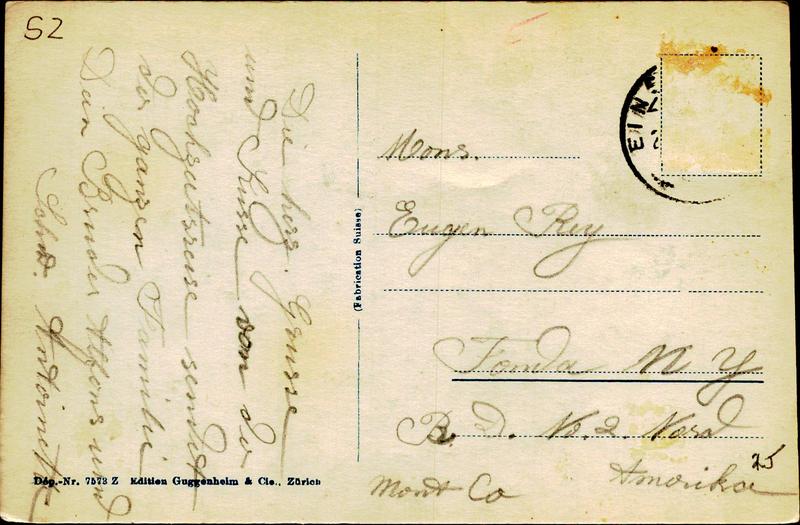 52
Die herz. Grüsse
und Küsse von der
Hochzeitsreise sendet
der ganzen Familie
Dein Bruder Alfons und
Schw. Antoinette
Dép.-Nr. 7573 Z Edition Guggenheim & Cie., Zürich
(Fabrication Suisse)
EIN
Mons.
Eugen Rey
Fonda N Y
R. D. No. 2. Nord
Mont Co Amerika
25